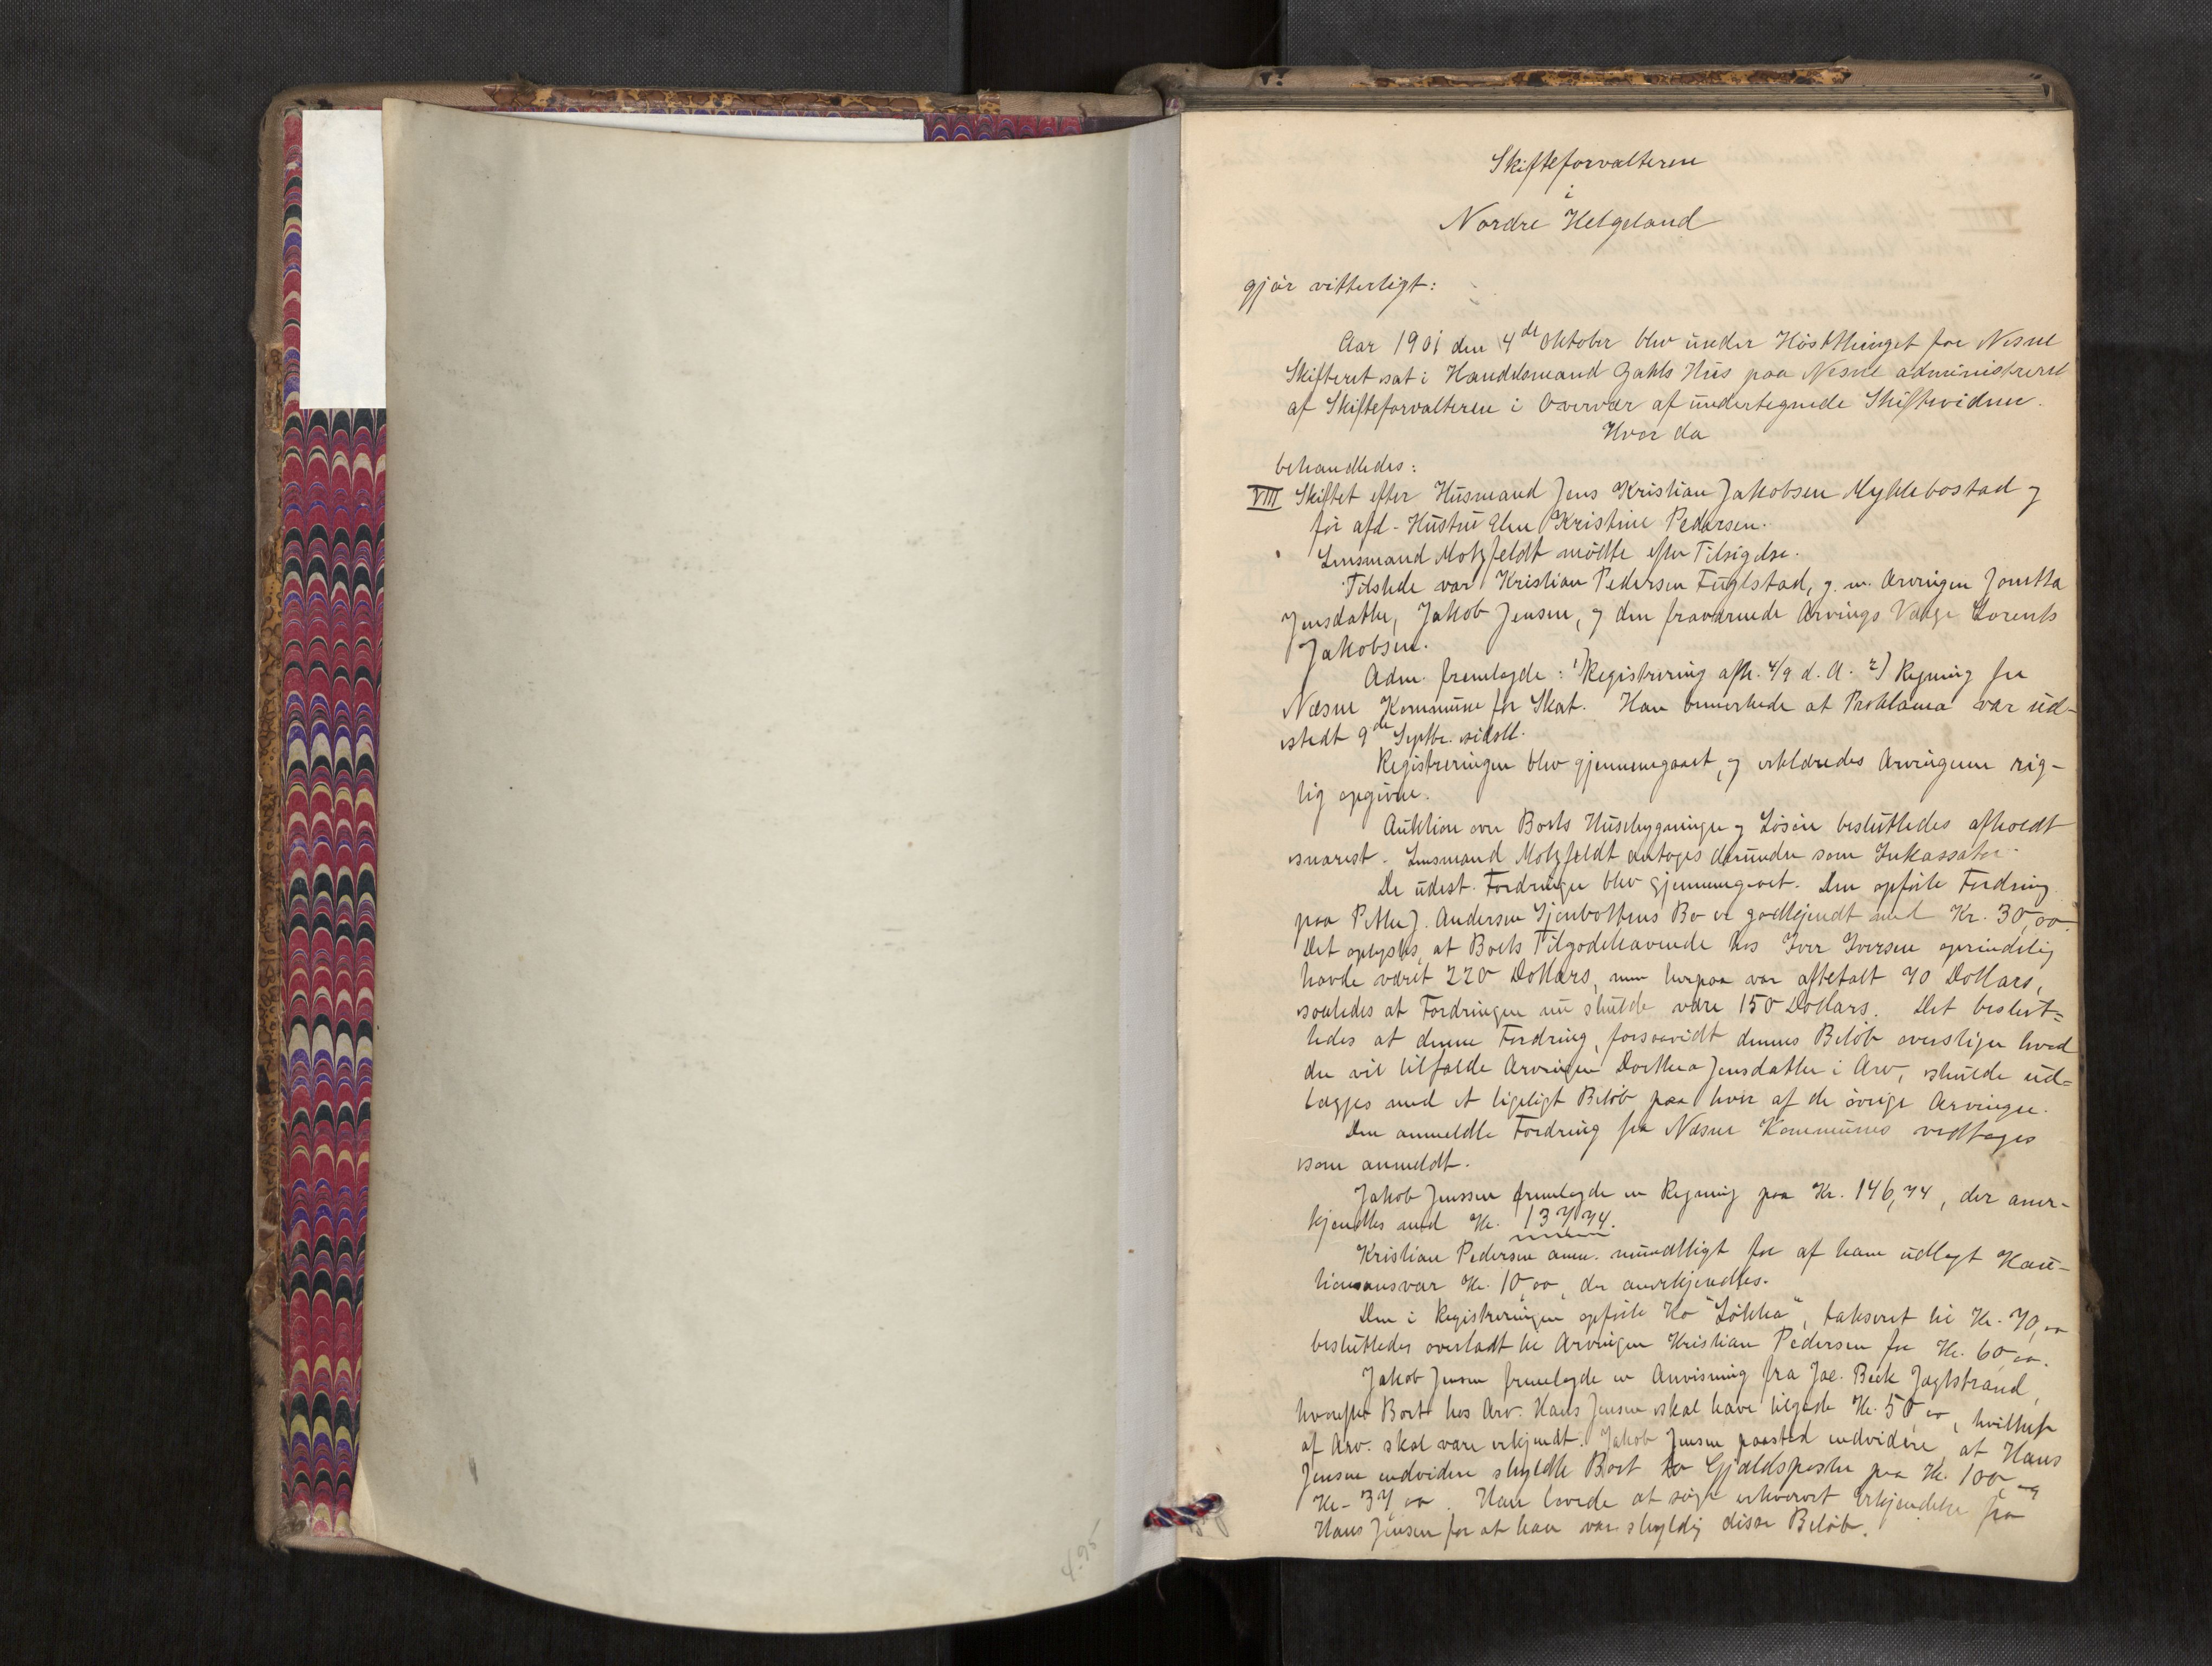 Skifteforvalteren
i
Nordre Helgeland
gjör vitterligt:
Aar 1901 den 4de Oktober blev under Höstthinget for Nesne
Skifteret sat i Handelsmand Zahls Hus paa Nesne administreret
af Skifteforvalteren i Overvær af undertegnede Skiftevidner.
Hvor da
behandledes:
VIII Skiftet efter Husmand Jens Kristian Jakobsen Myklebostad og
før afd. Hustru Elen Kristine Pedersen.
Lensmand Motzfeldt mödte efter Tilsigelse.
Tilstede var Kristian Pedersen Fuglstad, g. m. Arvingen Jonetta
Jensdatter, Jakob Jensen, og den fraværende Arvings Værge Lorents
Jakobsen.
Adm. fremlagde: 1) Registrering afh. 4/9 d. A. 2) Regning fra
Næsne Kommune for Skat. Han bemerkede at Proklama var ud-
stedt 9de Septbr. sidstl.
Registreringen blev gjennemgaaet, og erklæredes Arvingerne rig-
tig opgiven.
Auktion over Boets Husebygninger og Lösöre besluttedes afholdt
snarest. Lensmand Motzfeldt antages derunder som Inkassator.
De udest. Fordringer blev gjennemgaaet. Den opförte Fordring
paa Petter J. Andersen Sjonbottens Bo er godkjendt med Kr. 30,00.
Det oplystes, at Boets Tilgodehavende hos Iver Iversen oprindelig
havde været 220 Dollars, men herpaa var afbetalt 70 Dollars,
saaledes at Fordringen nu skulde være 150 Dollars. Det beslut=
tedes at denne Fordring, forsaavidt dennes Belöb overstiger hvad
der vil tilfalde Arvingen Dorthea Jensdatter i Arv, skulde ud=
lægges med et ligeligt Belöb paa hver af de övrige Arvinger.
Den anmeldte Fordring fra Næsne Kommunes vedtages
som anmeldt.
Jakob Jenssen fremlagde en Regning paa Kr. 146,74, der aner-
kjendtes med Kr. 137,74.
Kristian Pedersen anm. mundtligt for af ham udlagt Kau-
tionsansvar Kr. 10,00, der anerkjendtes.
Den i Registreringen opförte Ko "Lökka", takseret til Kr. 70,00
besluttedes overladt til Arvingen Kristian Pedersen for Kr. 60,00.
Jakob Jensen fremlagde en Anvisning fra Joc. Beck Jagtstrand,
hvorefter Boet hos Arv. Hans Jensen skal have tilgode Kr. 50,00, hvilket
af Arv. skal være erkjendt. Jakob Jensen paastod endvidere, at Hans
Jensen endvidere skyldte Boet to Gjældsposter paa Kr. 100,- og
Kr. 37,00. Han lovede at söge erhvervet Erkjendelse fra
Hans Jensen for at han var skyldig disse Belöb.
4.95